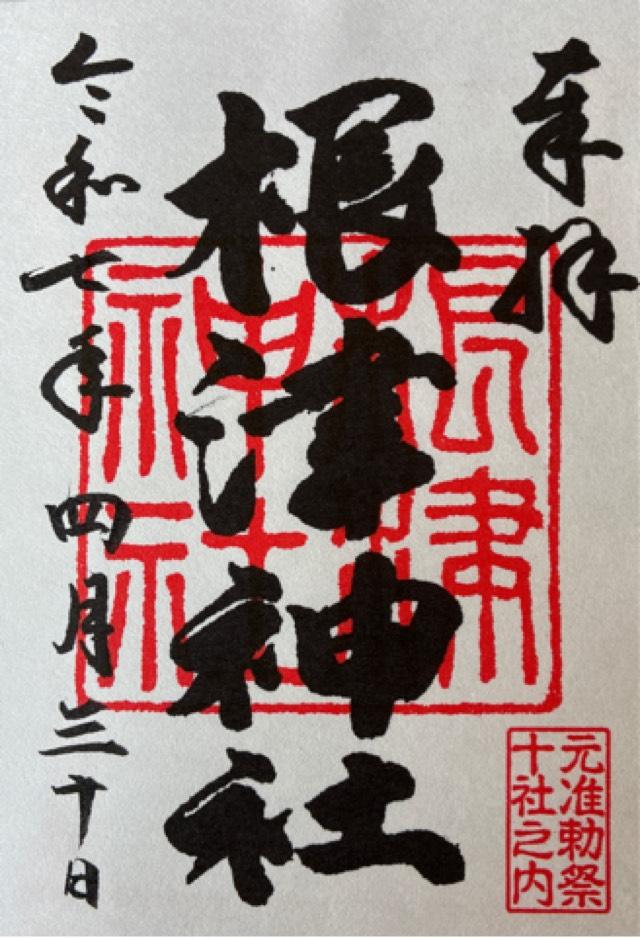 奉拝
根津神社
令和七年四月三十日
根津
神社
元准勅祭
十社之内